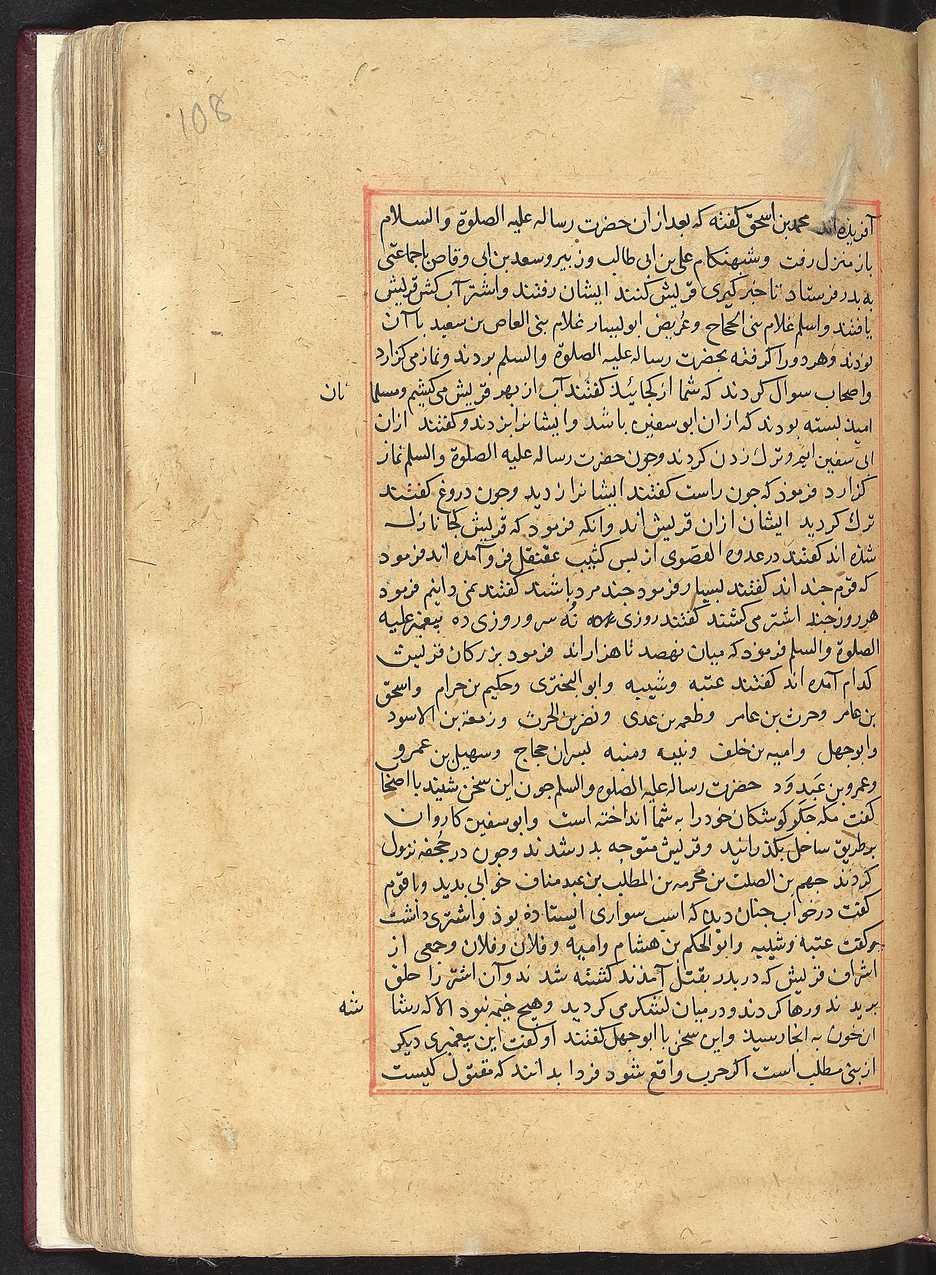 108
آفریده‌اند محمد بن اسحق گفته که بعد ازان حضرت رساله علیه الصلوة والسلام
باز منزل رفت وشبهنکام علی بن ابی طالب وزبیر وسعد بن ابی وقاص با جماعتی
به بدر فرستاد تا خبر کیری قریش کنند ایشان رفتند واشتر آب کش قریش
یافتند واسلم غلام بنی الحجاح وعریض ابو لیسار غلام بنی العاص بن سعید با آن
بودند وهر دو را کرفته بحضرت رساله علیه الصلوة والسلم بردند ونماز می کزارد
واصحاب سوال کردند که شما از کجائید کفتند آب از بهر قریش می کشیم ومسلما
نان
امید بسته بودند که ازان ابو سفین باشد وایشانرا بزدند وکفتند ازان
ابی سفین ایم وترک زدن کردند وچون حضرت رساله علیه الصلوة والسلم نماز
کزارد فرمود که چون راست کفتند ایشانرا زدید وچون دروغ کفتند
ترک کردید ایشان ازان قریش اند وانکه فرمود که قریش کجا نازل
شده اند کفتند در عدوه القصوی از بس کثیب عقنقل فرو آمده اند فرمود
که قوم چند اند کفتند بسیار فرمود چند مرد باشند کفتند نمی دانیم فرمود
هر روز چند اشتر می کشند کفتند روزی نُه سر وروزی ده پیغمبر علیه
الصلوة والسلم فرمود که میان نهصد تا هزار اند فرمود بزرکان قریش
کدام آمده اند کفتند عتبه وشیبه وابو البختری وحکیم بن حزام واسحق
بن عامر وحرث بن عامر وطعمه بن عدی ونضر بن الحرث وزمعة بن الاسود
وابو جهل وامیه بن خلف ونبیه ومنبه بسران حجاج وسهیل بن عمرو
وعمرو بن عَبدوَد حضرت رساله علیه الصلوه والسلم چون این سخن شنید با اصحا
کفت مکه جکر کوشکان خود را به شما انداخته است وابو سفین کاروان
بر طریق ساحل بکذرانید وقریش متوجه بدر شدند وچون در جُحفه نزول
کردند جهم بن الصلت بن مخرمه بن المطلب بن عبد مناف خوابی بدید وبا قوم
کفت در خواب چنان دیدم که اسب سواری ایستاده بوذ واشتری داشت
وکفت عتبه وشیبه وابو الحکم بن هشام وامیه وفلان وفلان وجمعی از
اشراف قریش که در بدر بقتل آمدند کشته شدند وآن اشتر را حلق
بریدند ورها کردند ودر میان لشکر می کردید وهیچ خیمه نبود الا که رشا
شه
ان خون به انجا رسید واین سخن با ابو جهل کفتند او کفت این پیغمبری دیکر
از بنی مطلب است اکر حرب واقع شود فردا بدانند که مقتول کیست